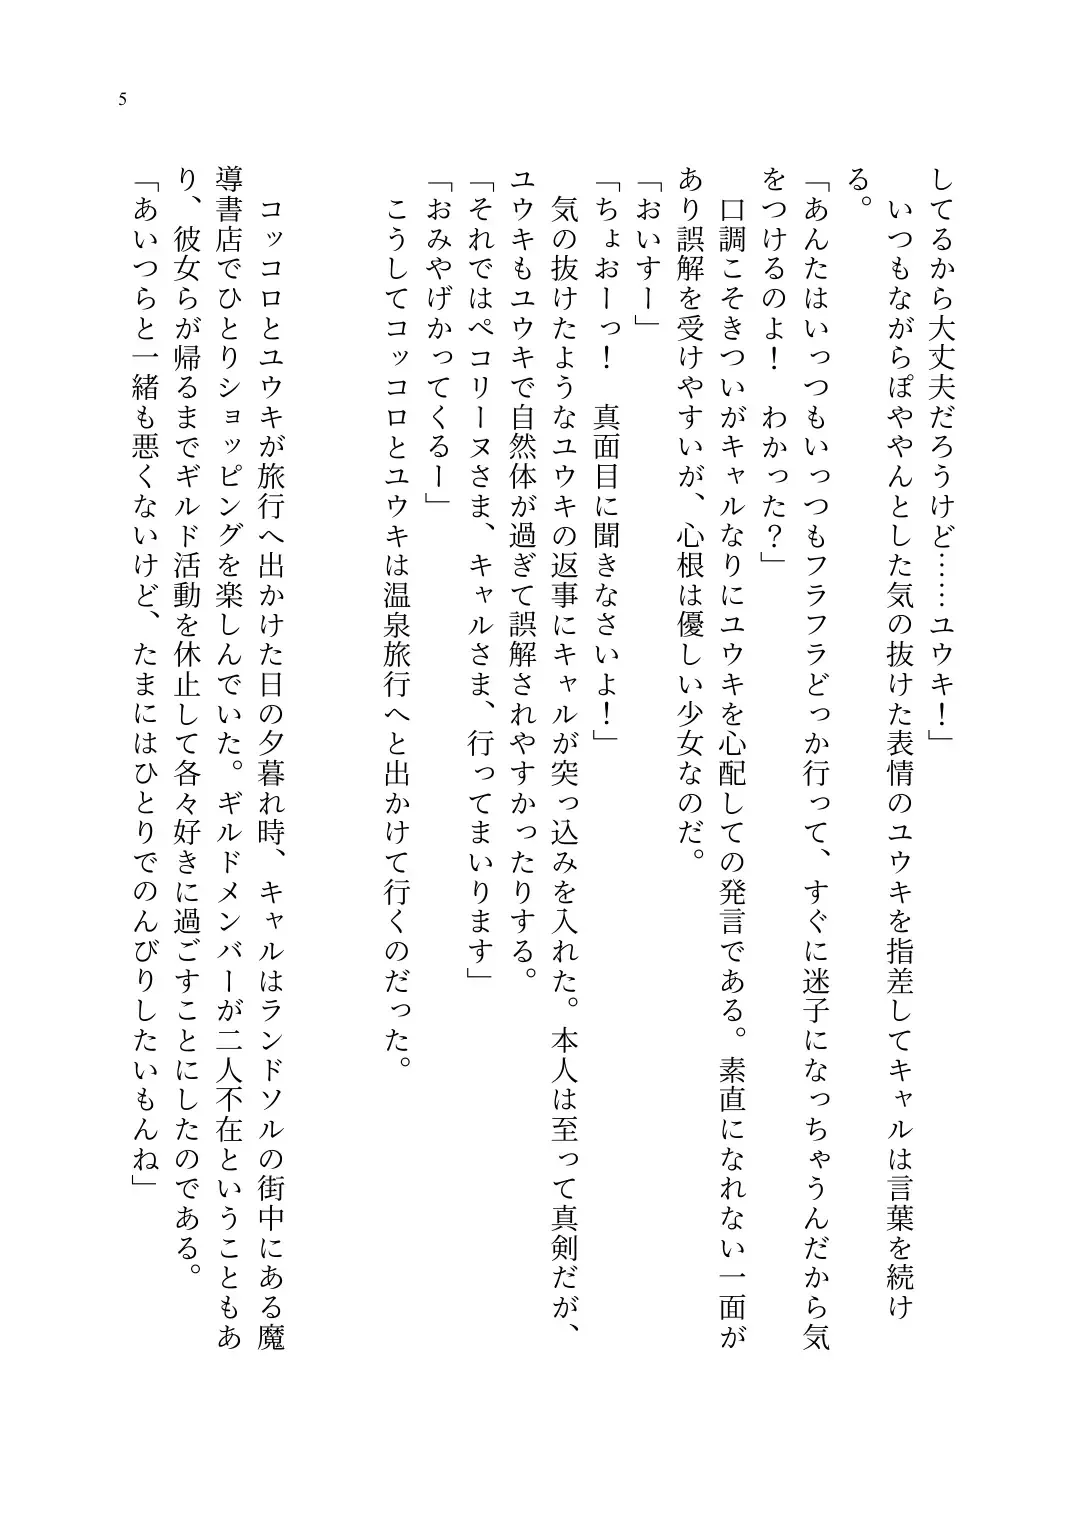 5
してるから大丈夫だろうけど……ユウキ！」
　いつもながらぽややんとした気の抜けた表情のユウキを指差してキャルは言葉を続け
る。
「あんたはいっつもいっつもフラフラどっか行って、すぐに迷子になっちゃうんだから気
をつけるのよ！　わかった？」
　口調こそきついがキャルなりにユウキを心配しての発言である。素直になれない一面が
あり誤解を受けやすいが、心根は優しい少女なのだ。
「おいすー」
「ちょおーっ！　真面目に聞きなさいよ！」
　気の抜けたようなユウキの返事にキャルが突っ込みを入れた。本人は至って真剣だが、
ユウキもユウキで自然体が過ぎて誤解されやすかったりする。
「それではペコリーヌさま、キャルさま、行ってまいります」
「おみやげかってくるー」
　こうしてコッコロとユウキは温泉旅行へと出かけて行くのだった。
　コッコロとユウキが旅行へ出かけた日の夕暮れ時、キャルはランドソルの街中にある魔
導書店でひとりショッピングを楽しんでいた。ギルドメンバーが二人不在ということもあ
り、彼女らが帰るまでギルド活動を休止して各々好きに過ごすことにしたのである。
「あいつらと一緒も悪くないけど、たまにはひとりでのんびりしたいもんね」